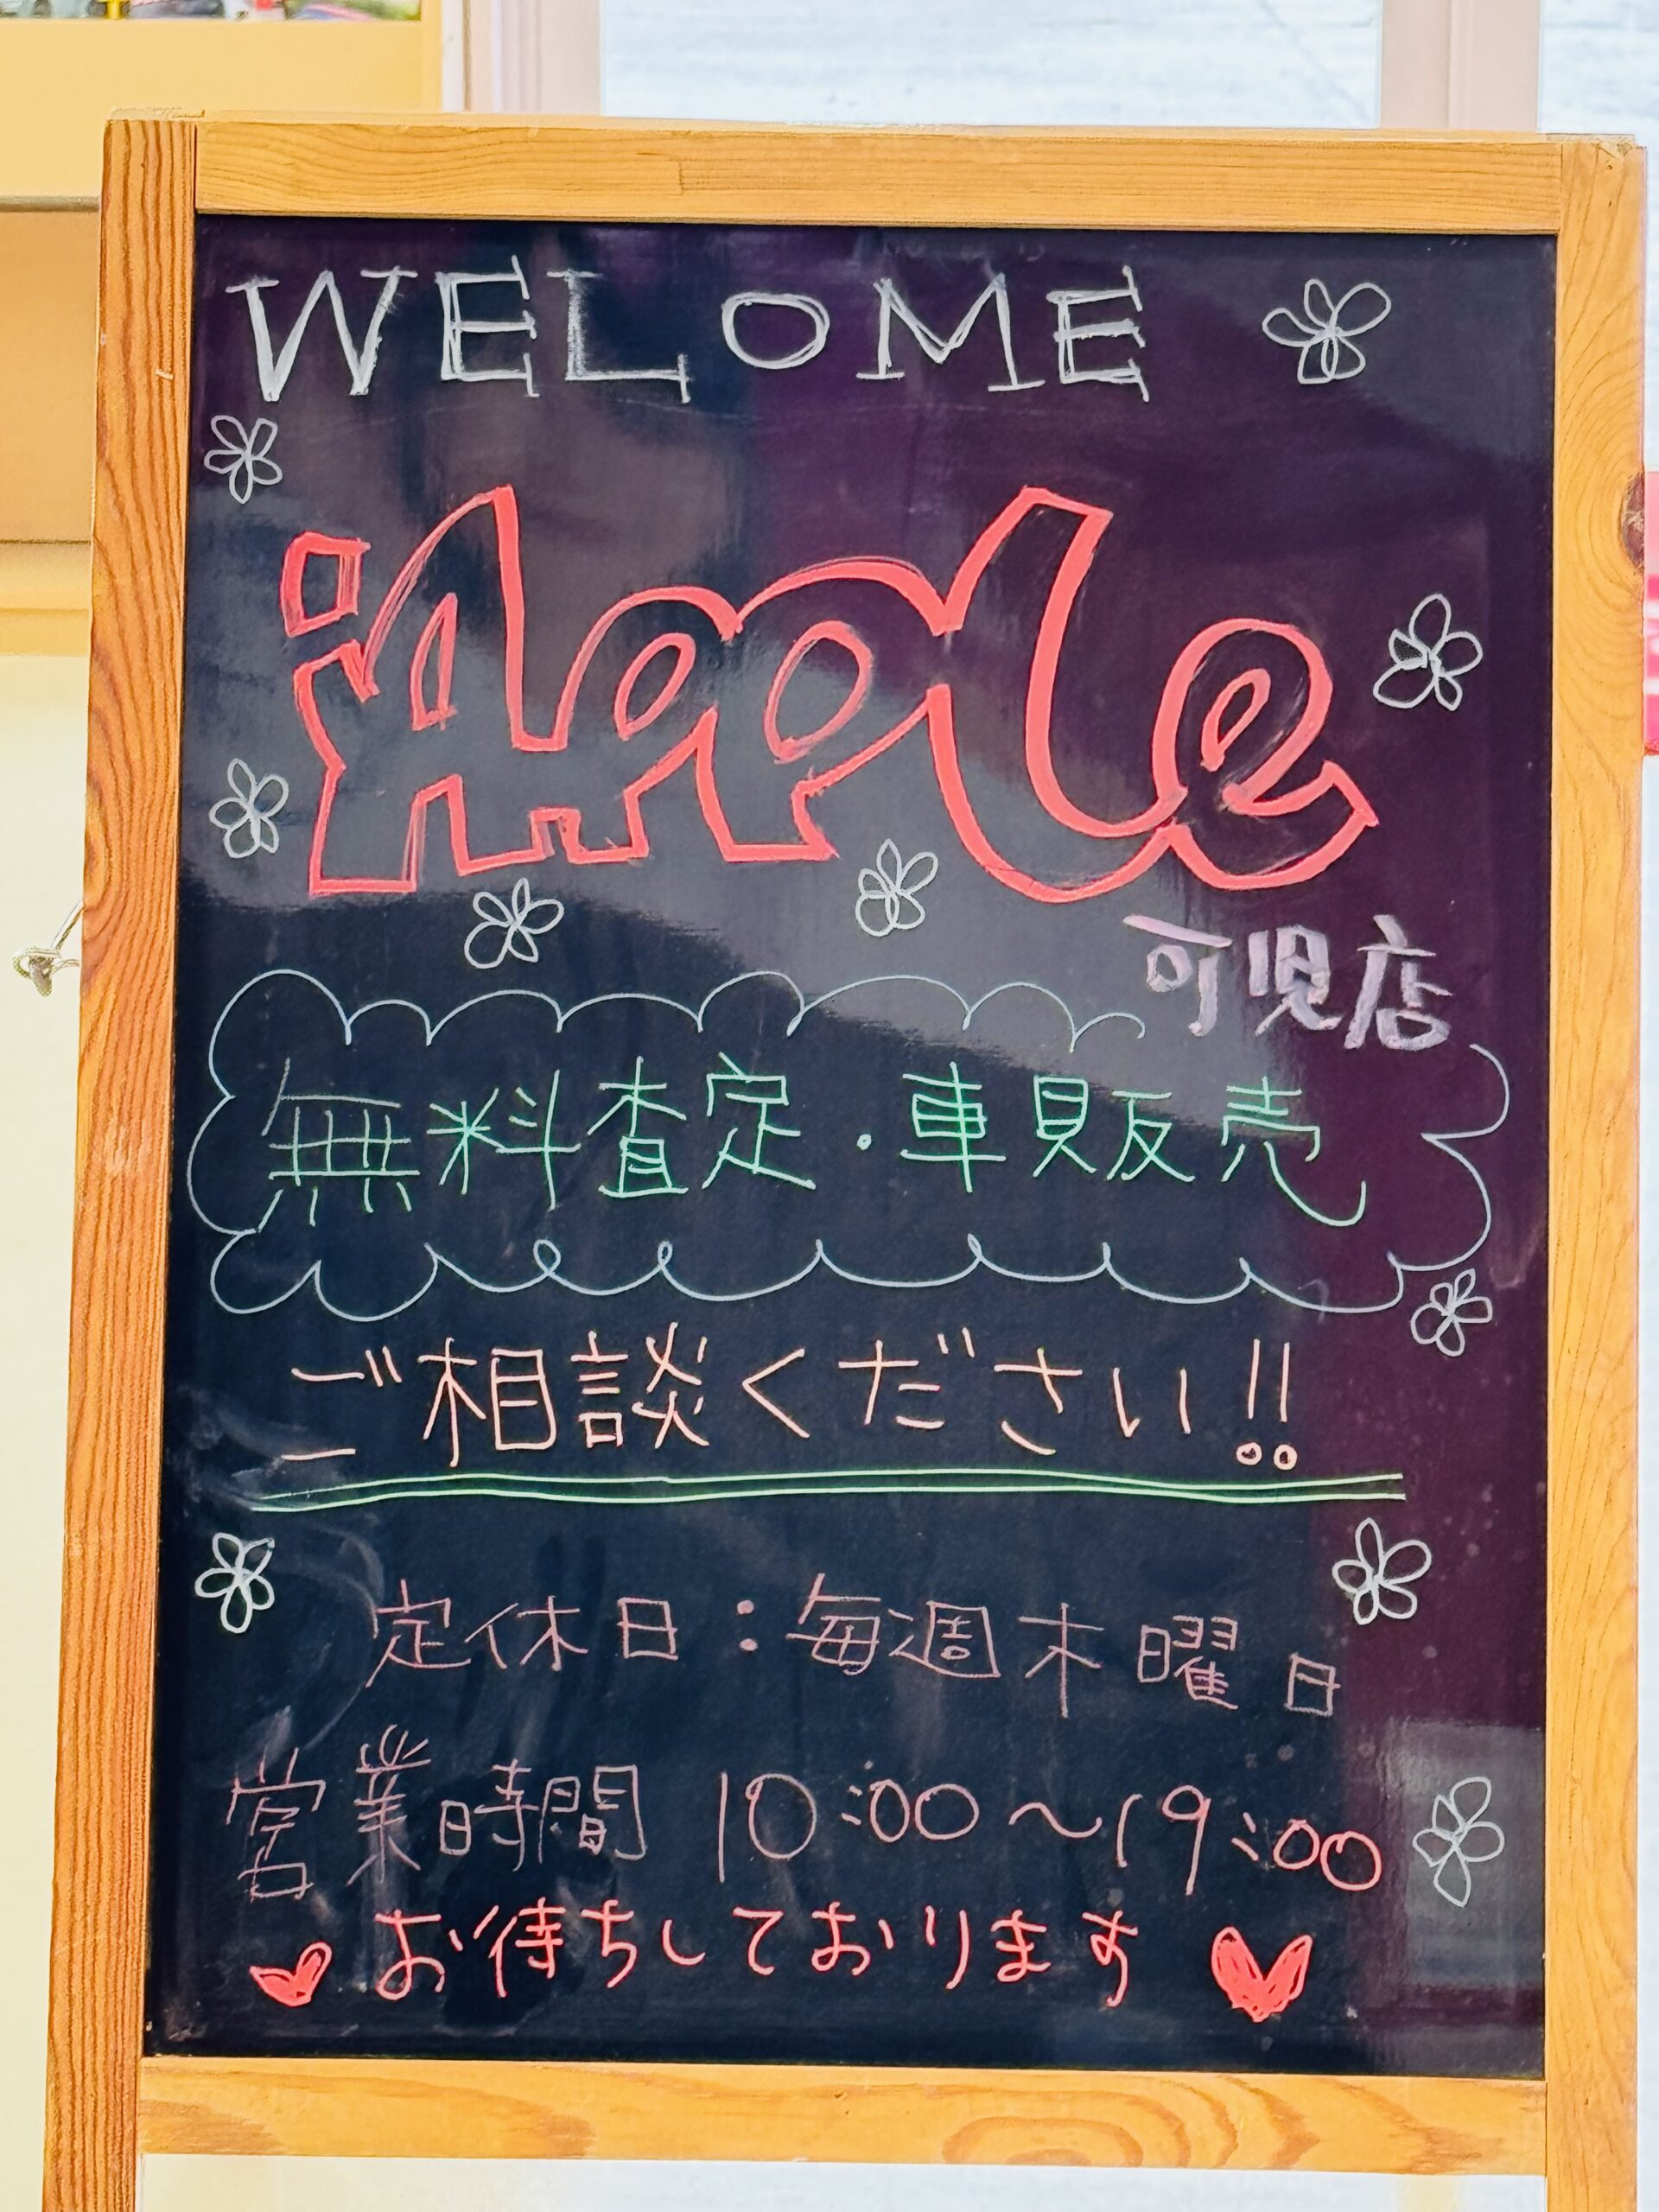 WELOME
Apple
可児店
無料査定・車販売
ご相談ください!!
定休日:毎週木曜日
営業時間 10:00〜19:00
お待ちしております